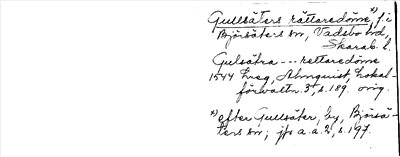 Gullsäters rättaredöme*), f. i
Björsäters sn, Vadsbo hd,
Skarab. l.
Gulsätra --- rettaredöme
1544 Ereg, Almquist, Lokal-
förvaltn. 3, s. 189. orig.
*) efter Gullsäter, by, Björsä-
ters sn; jfr a.a. 2, s. 197.